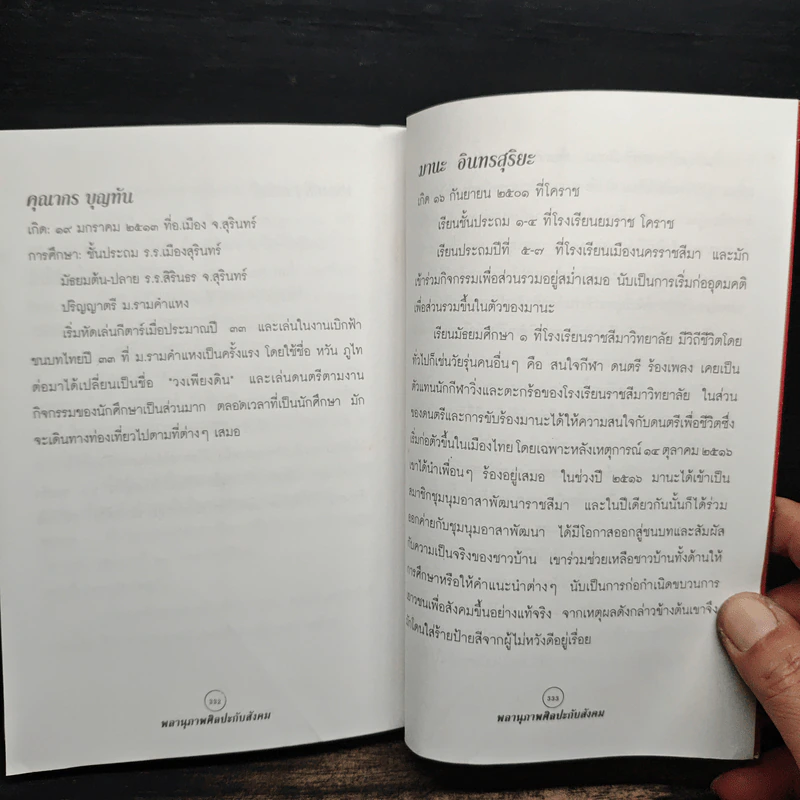 คุณากร บุญทัน
เกิด: ๑๙ มกราคม ๒๕๑๓ ที่อ.เมือง จ.สุรินทร์
การศึกษา: ชั้นประถม ร.ร.เมืองสุรินทร์
มัธยมต้น-ปลาย ร.ร.สิรินธร จ.สุรินทร์
ปริญญาตรี ม.รามคำแหง
เริ่มหัดเล่นกีตาร์เมื่อประมาณปี ๓๓ และเล่นในงานเบิกฟ้า
ชนบทไทยปี ๓๓ ที่ ม.รามคำแหงเป็นครั้งแรก โดยใช้ชื่อ หวัน ภูไท
ต่อมาได้เปลี่ยนเป็นชื่อ "วงเพียงดิน" และเล่นดนตรีตามงาน
กิจกรรมของนักศึกษาเป็นส่วนมาก ตลอดเวลาที่เป็นนักศึกษา มัก
จะเดินทางท่องเที่ยวไปตามที่ต่างๆ เสมอ
332
พลานุภาพศิลปะกับสังคม
มานะ อินทรสุริยะ
เกิด ๑๖ กันยายน ๒๕๐๑ ที่โคราช
เรียนชั้นประถม ๑-๔ ที่โรงเรียนยมราช โคราช
เรียนประถมปีที่ ๕-๗ ที่โรงเรียนเมืองนครราชสีมา และมัก
เข้าร่วมกิจกรรมเพื่อส่วนรวมอยู่สม่ำเสมอ นับเป็นการเริ่มก่ออุดมคติ
เพื่อส่วนรวมขึ้นในตัวของมานะ
เรียนมัธยมศึกษา ๑ ที่โรงเรียนราชสีมาวิทยาลัย มีวิถีชีวิตโดย
ทั่วไปก็เช่นวัยรุ่นคนอื่นๆ คือ สนใจกีฬา ดนตรี ร้องเพลง เคยเป็น
ตัวแทนนักกีฬาวิ่งและตะกร้อของโรงเรียนราชสีมาวิทยาลัย ในส่วน
ของดนตรีและการขับร้องมานะได้ให้ความสนใจกับดนตรีเพื่อชีวิตซึ่ง
เริ่มก่อตัวขึ้นในเมืองไทย โดยเฉพาะหลังเหตุการณ์ ๑๔ ตุลาคม ๒๕๑๖
เขาได้นำเพื่อนๆ ร้องอยู่เสมอ ในช่วงปี ๒๕๑๖ มานะได้เข้าเป็น
สมาชิกชุมนุมอาสาพัฒนาราชสีมา และในปีเดียวกันนั้นก็ได้ร่วม
ออกค่ายกับชุมนุมอาสาพัฒนา ได้มีโอกาสออกสู่ชนบทและสัมผัส
กับความเป็นจริงของชาวบ้าน เขาร่วมช่วยเหลือชาวบ้านทั้งด้านให้
การศึกษาหรือให้คำแนะนำต่างๆ นับเป็นการก่อกำเนิดขบวนการ
เยาวชนเพื่อสังคมขึ้นอย่างแท้จริง จากเหตุผลดังกล่าวข้างต้นเขาจึง
มักโดนใส่ร้ายป้ายสีจากผู้ไม่หวังดีอยู่เรื่อย
333
พลานุภาพศิลปะกับสังคม